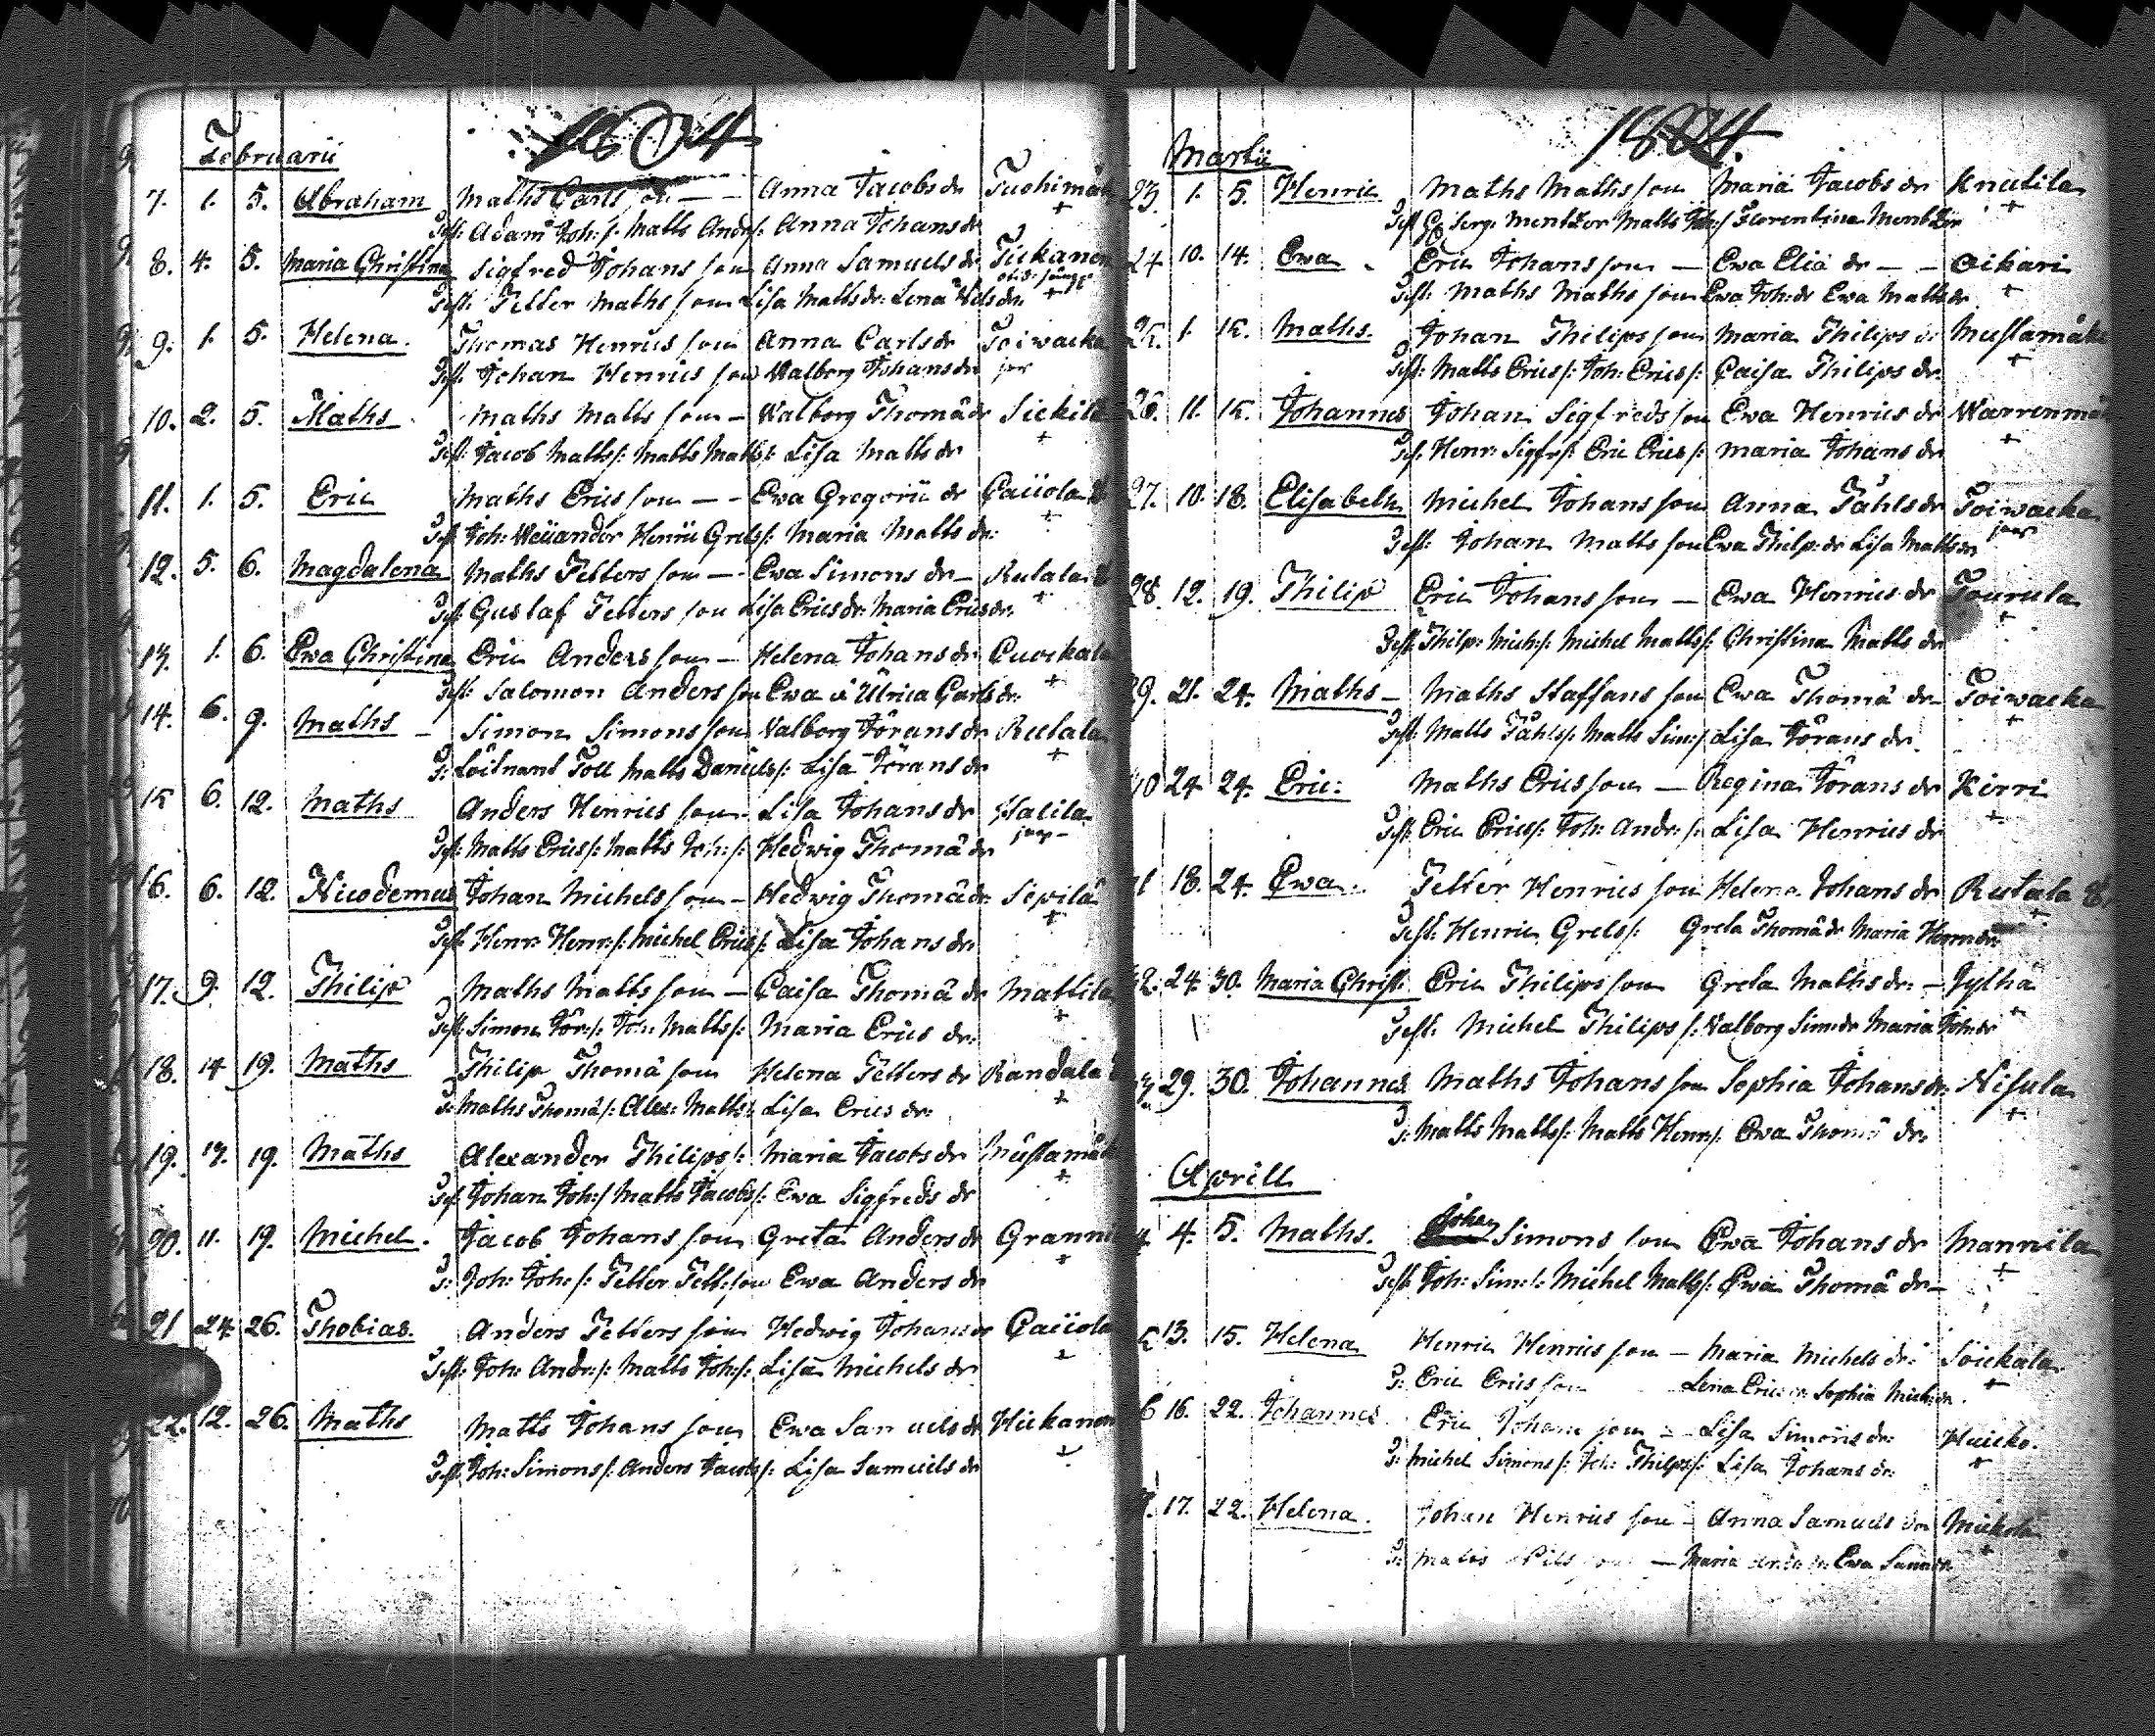 1804
Februarii
7. 1. 5. Abraham Maths Carls son - - Anna Jacobs dr
Test: Adam Joh: s: Matts Andr s: Anna Johans dr
8. 4. 5. Maria Christina Sigfred Johans son Anna Samuels dr
Test: Petter Maths son Lisa Matts dr: Lena Nils dr:
9. 1. 5. Helena. Thomas Henrics son Anna Carls dr Poiwacka
Test: Johan Henrics son Walborg Johans dr
10. 2. 5. Maths. Maths Matts son - Walborg Thomä dr
Test: Jacob Matts s: Matts Matts s: Lisa Matts dr
11. 1. 5. Eric Maths Erics son - - Ewa Gregorii dr
Test: Joh: Henric Grels s: Maria Matts dr:
12. 5. 6. Magdalena Maths Petters son - Ewa Simons dr - Rutala
Test: Gustaf Petters son Lisa Erics dr Maria Erics dr:
13. 1. 6. Ewa Christina Eric Anders son - Helena Johans dr
Test: Salomon Anders son Ewa Ulrica Carls dr:
14. 6. 9. Maths - Simon Simons son Valborg Jörans dr Rutala
T: Löitnant Toll Matts Daniels s: Lisa Jörans dr
15 6. 12. Maths Anders Henrics son Lisa Johans dr Halila
Test: Matts Erics s: Matts Joh: s: Hedwig Thomä dr
16. 6. 12. Nicodemus Johan Michels son - Hedwig Thomä dr
Test: Henr: Henr: s: Michel Erics s: Lisa Johans dr:
17. 9. 12. Philip Maths Matts son - Caisa Thomä dr Mattila
Test: Simon Jör: s: Joh: Matts s: Maria Erics dr:
18. 14 19. Maths Philip Thomä son Helena Petters dr Randala
T: Maths Thomä s: Alex: Matts s: Lisa Erics dr:
19. 13. 19. Maths Alexander Philips s: Maria Jacobs dr
Test: Johan Joh: s: Matts Jacobs s: Ewa Sigfreds dr
20. 11. 19. Michel. Jacob Johans son Greta Anders dr
T: Joh: Joh: s: Petter Pett: son Ewa Anders dr
21 24. 26. Thobias. Anders Petters son Hedwig Johans dr
Test: Joh: Andr: s: Matts Joh: s: Lisa Michels dr
22. 12. 26. Maths Matts Johans son Ewa Samuels dr
Test: Joh: Simons s: Anders Jacobs s: Lisa Samuels dr
1804.
Martii
23. 1. 5. Henric Maths Maths son Maria Jacobs dr Knutila
Test: Serg: Mentzer Matts Joh: s: Florentina Mentzer
24 10. 14. Ewa Eric Johans son - Ewa Eliä dr - - Oikari
Test: Maths Maths son Ewa Joh: dr Ewa Matts dr
25. 1. 15. Maths. Johan Philips son Maria Philips dr
Test: Matts Erics s: Joh: Erics s: Caisa Philips dr.
26. 11. 15. Johannes Johan Sigfreds son Ewa Henrics dr
Test: Henr: Sigfr: s: Eric Erics s: Maria Johans dr
27. 10 18. Elisabeth Michel Johans son Anna Påhls dr Poiwacka
Test: Johan Matts son Ewa Philp: dr Lisa Matts dr
28. 12. 19. Philip Eric Johans son - Ewa Henrics dr Pourula
Test: Philp: Mich: s: Michel Matts s: Christina Matts dr
29. 21. 24. Maths - Maths Staffans son Ewa Thomä dr Poiwacka
Test: Matts Påhls s: Matts Sim: s: Lisa Jörans dr.
30 24 24. Eric: Maths Erics son - Regina Jörans dr Kirri
Test: Eric Erics s: Joh: Andr: s: Lisa Henrics dr
31 18. 24. Ewa. Petter Henrics son Helena Johans dr Rutala
Test: Henric Grels s: Greta Thomä dr Maria Henr: dr
32. 24. 30. Maria Christ: Eric Philips son Greta Maths dr: - Jylhä
Test: Michel Philips s: Valborg Sim: dr Maria Joh: dr
33. 29. 30. Johannes Maths Johans son Sophia Johans dr: Nisula
T: Matts Matts s: Matts Henr: s: Ewa Thomä dr:
Aprill
4. 5. Maths. Johan Simons son Ewa Johans dr Mannila
Test: Joh: Sim: s: Michel Matts s: Ewa Thomä dr -
13. 15. Helena Henric Henrics son - Maria Michels dr: Soickala
T: Eric Erics son Lena Erics dr Sophia Mich: dr.
16. 22. Johannes Eric Johans son - Lisa Simons dr:
T: Michel Simons s: Joh: Philps s: Lisa Johans dr:
17. 22. Helena. Johan Henrics son - Anna Samuels dr
T: Matts Nils son - Maria Ewa